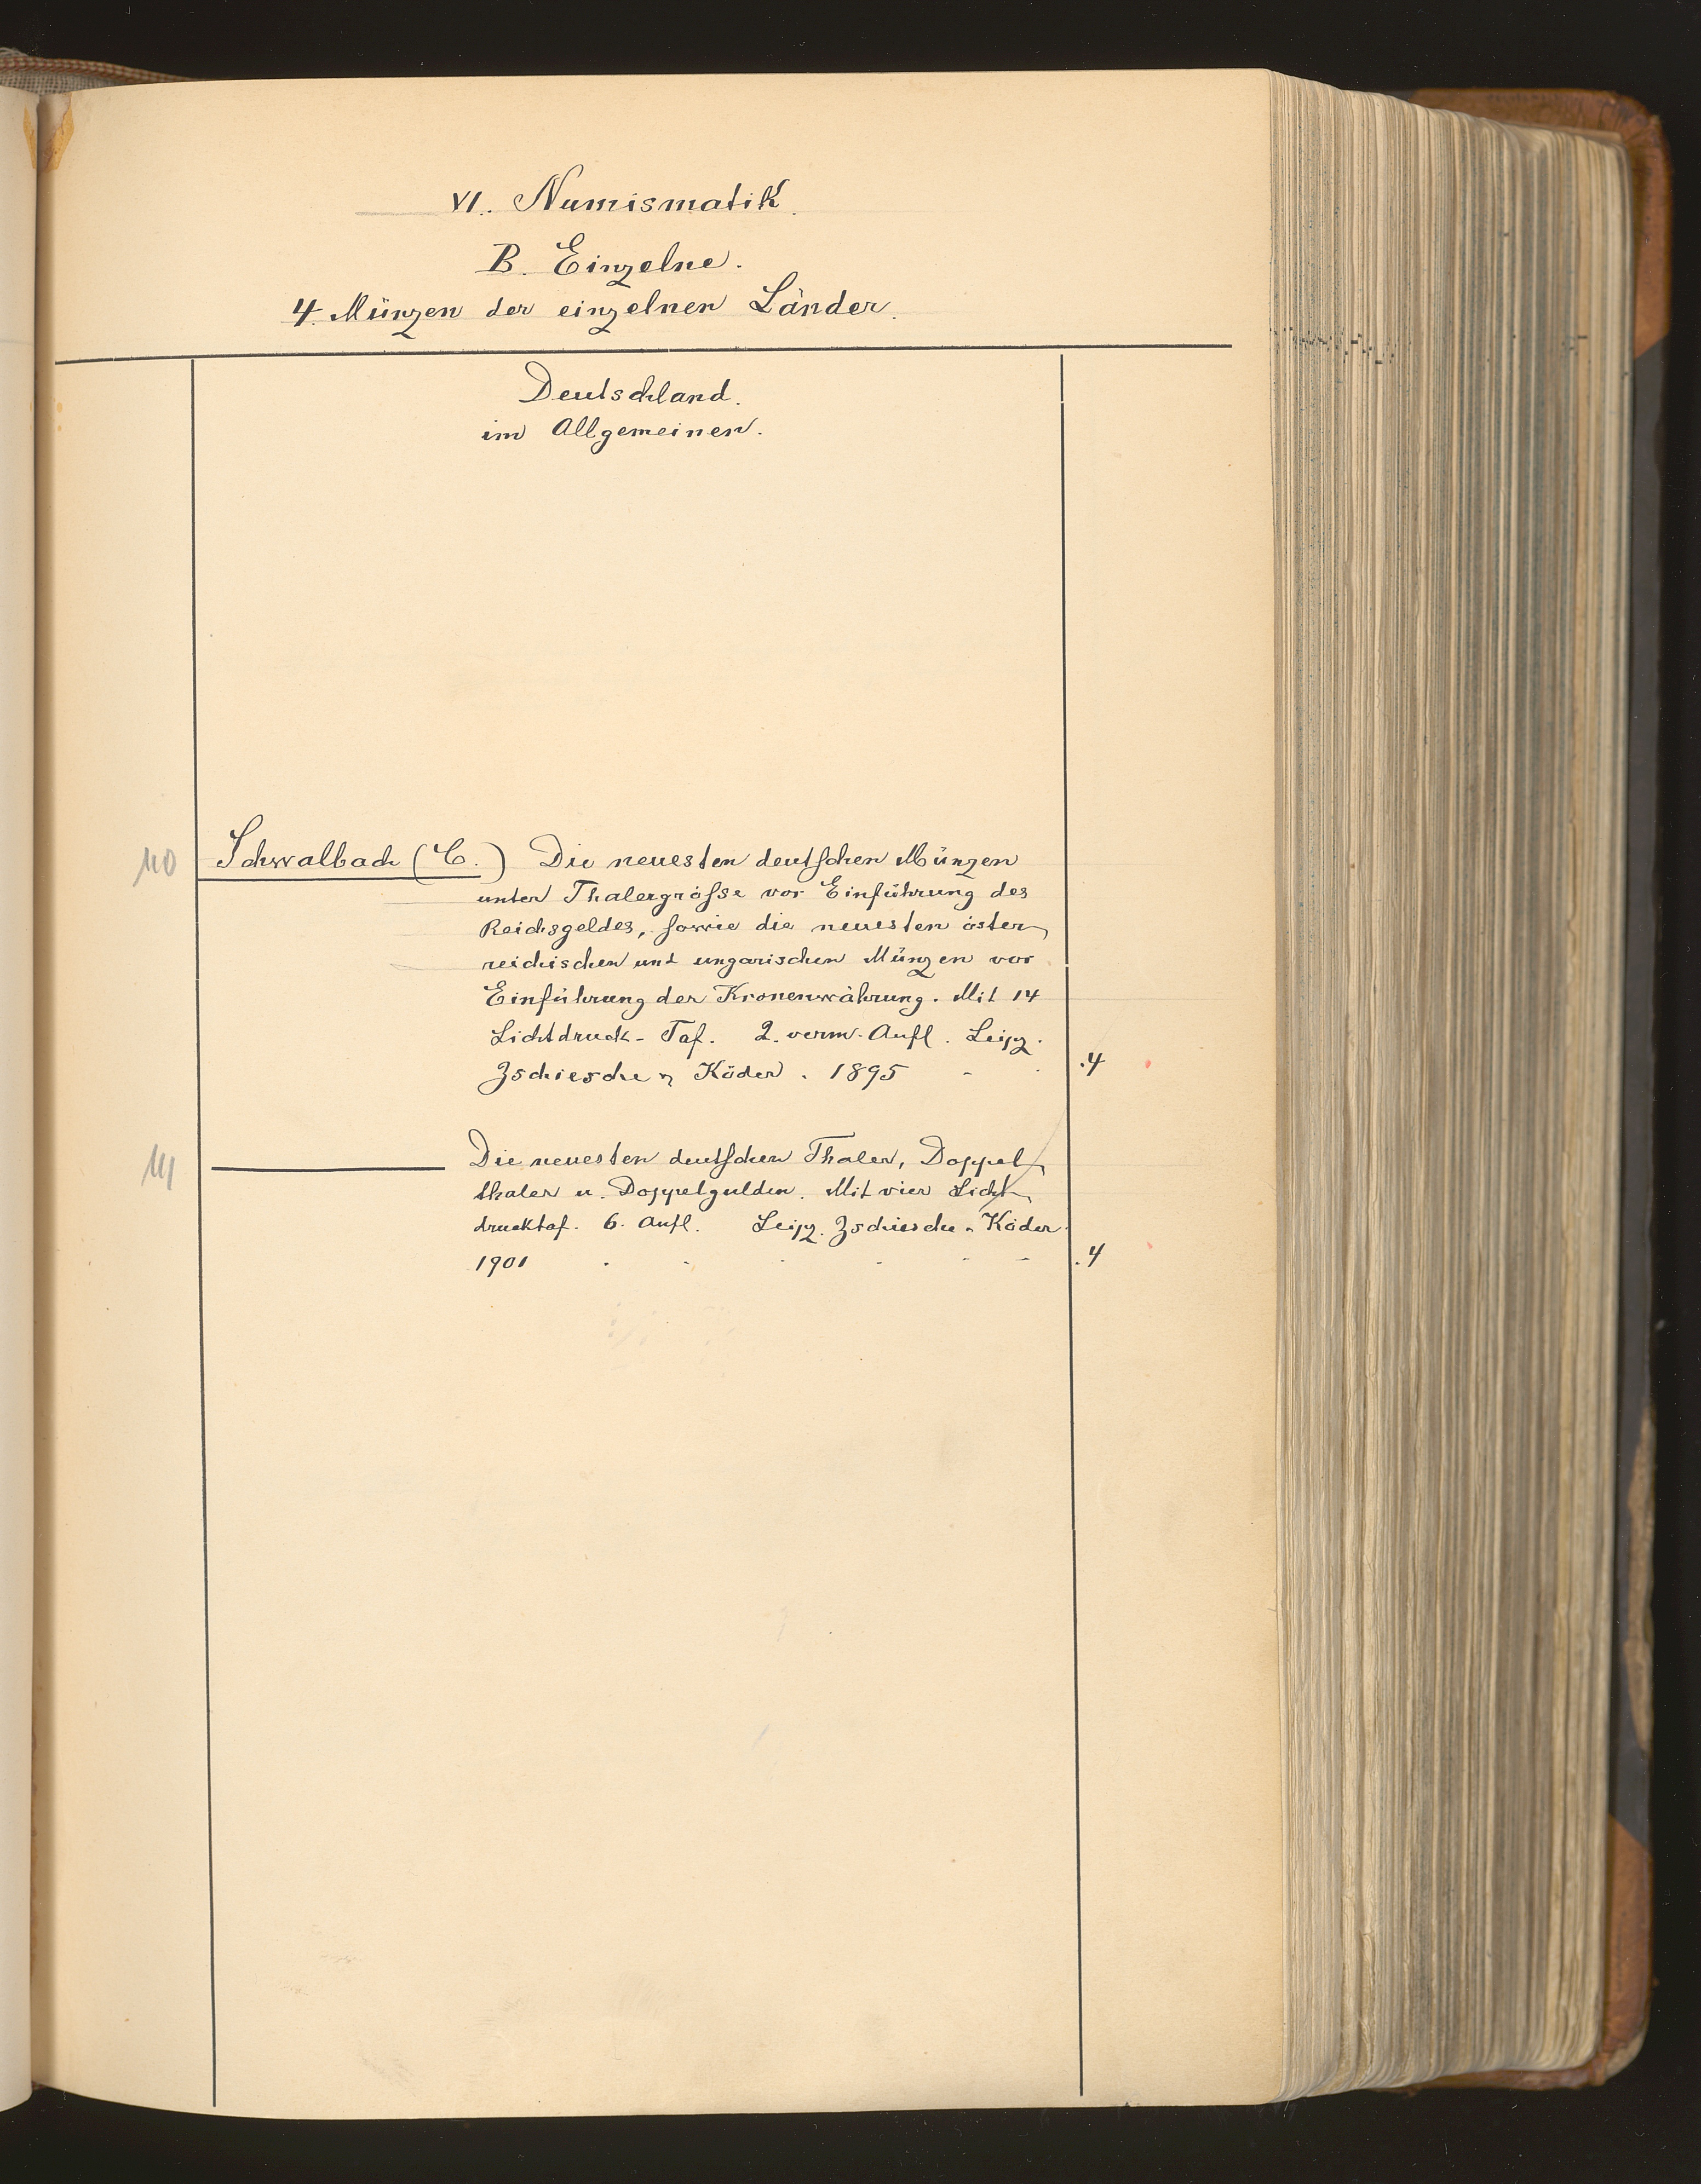 VI. Numismatik.
B. Einzelne.
4. Münzen der einzelnen Länder.
Deutschland.
im Allgemeinen.
110 Schwalbach (C.) Die neuesten deutschen Münzen
unter Thalergrösse vor Einführung des
Reichsgeldes, sowie die neuesten öster-
reichischen und ungarischen Münzen vor
Einführung der Kronenwährung. Mit 14
Lichtdruck-Taf. 2. verm. Aufl. Leipz.
Zschiesche u. Köder. 1895 - . 4
111 ——— Die neuesten deutschen Thaler, Doppel-
thaler u. Doppelgulden. Mit vier Licht-
drucktaf. 6. Aufl. Leipz. Zschiesche u. Köder.
1901 . . . . - - . 4